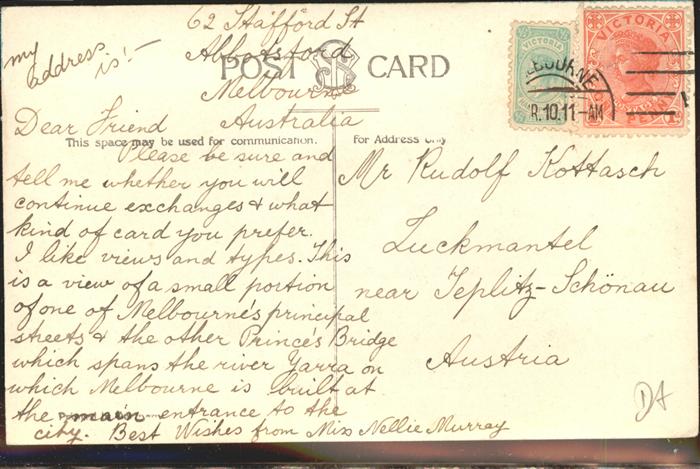 my
address
is:-
62 Stafford St
Abbotsford
Melbourne
Australia
POST CARD
This space may be used for communication.
For Address only
Dear Friend
Please be sure and
tell me whether you will
continue exchanges & what
kind of card you prefer.
I like views and types. This
is a view of a small portion
of one of Melbourne's principal
streets & the other Prince's Bridge
which spans the river Yarra on
which Melbourne is built at
the main entrance to the
city. Best Wishes from Miss Nellie Murray
Mr Rudolf Kottasch
Luckmantel
near Teplitz-Schönau
Austria
VICTORIA
VICTORIA
PENNY
ELBOURNE
R.10.11-AM